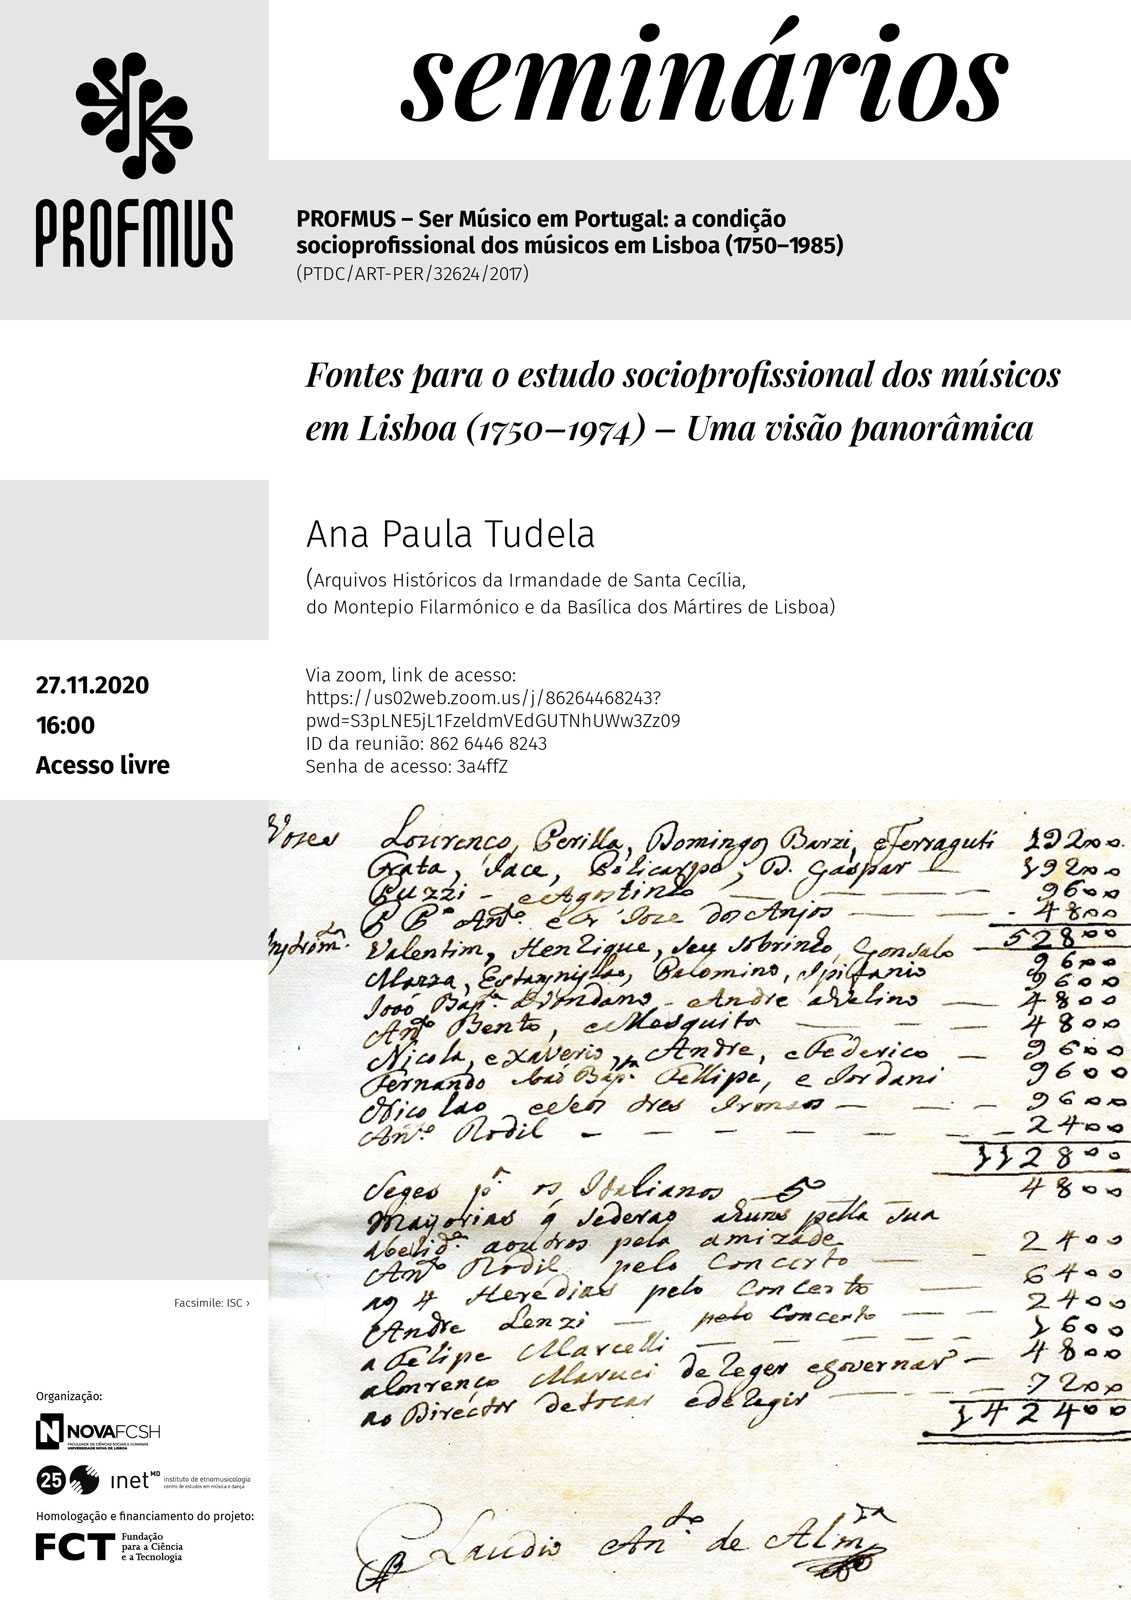 seminários
PROFMUS
PROFMUS – Ser Músico em Portugal: a condição
socioprofissional dos músicos em Lisboa (1750–1985)
(PTDC/ART-PER/32624/2017)
Fontes para o estudo socioprofissional dos músicos
em Lisboa (1750–1974) – Uma visão panorâmica
Ana Paula Tudela
(Arquivos Históricos da Irmandade de Santa Cecília,
do Montepio Filarmónico e da Basílica dos Mártires de Lisboa)
27.11.2020
16:00
Acesso livre
Via zoom, link de acesso:
https://us02web.zoom.us/j/86264468243?
pwd=S3pLNE5jL1FzeldmVEdGUTNhUWw3Zz09
ID da reunião: 862 6446 8243
Senha de acesso: 3a4ffZ
Vozes Lourenço, Perilla, Domingos Barzi, e Ferraguti 19200
Prata, Jace, Policarpo, D. Gaspar 19200
Puzzi - e Agostinho 9600
P Pe Anto. e Joze dos Anjos 4800
52800
Valentim, Henrique, seu sobrinho, Gonsalo 9600
Mazza, Estanyslao, Palomino, Ipifanio 9600
João Bapta. Avondano - Andre Avelino 4800
Anto Bento, e Mesquita 4800
Nicola, e Xaverio, Andre, e Federico 9600
Fernando João Bapta. Fellipe, e Jordani 9600
Nicolao e seos tres 9600
Anto. Rodil 2400
112800
Seges pa. os Italianos 5º 4800
Mayorias q sederao aluns pella sua
abelide. aoutros pela amizade
Anto Rodil pelo Concerto 2400
aos 4 Heredias pelo Concerto 6400
Andre Lenzi pelo Concerto 2400
a Felipe Marcelli 1600
alourenco Maruci de Reger egovernar 4800
ao Director detocar edeRegir 7200
142400
Claudio Anto. de Alma
Facsimile: ISC ›
Organização:
N NOVAFCSH
FACULDADE DE CIÊNCIAS SOCIAIS E HUMANAS
UNIVERSIDADE NOVA DE LISBOA
25 inet MD instituto de etnomusicologia
centro de estudos em música e dança
Homologação e financiamento do projeto:
FCT Fundação
para a Ciência
e a Tecnologia